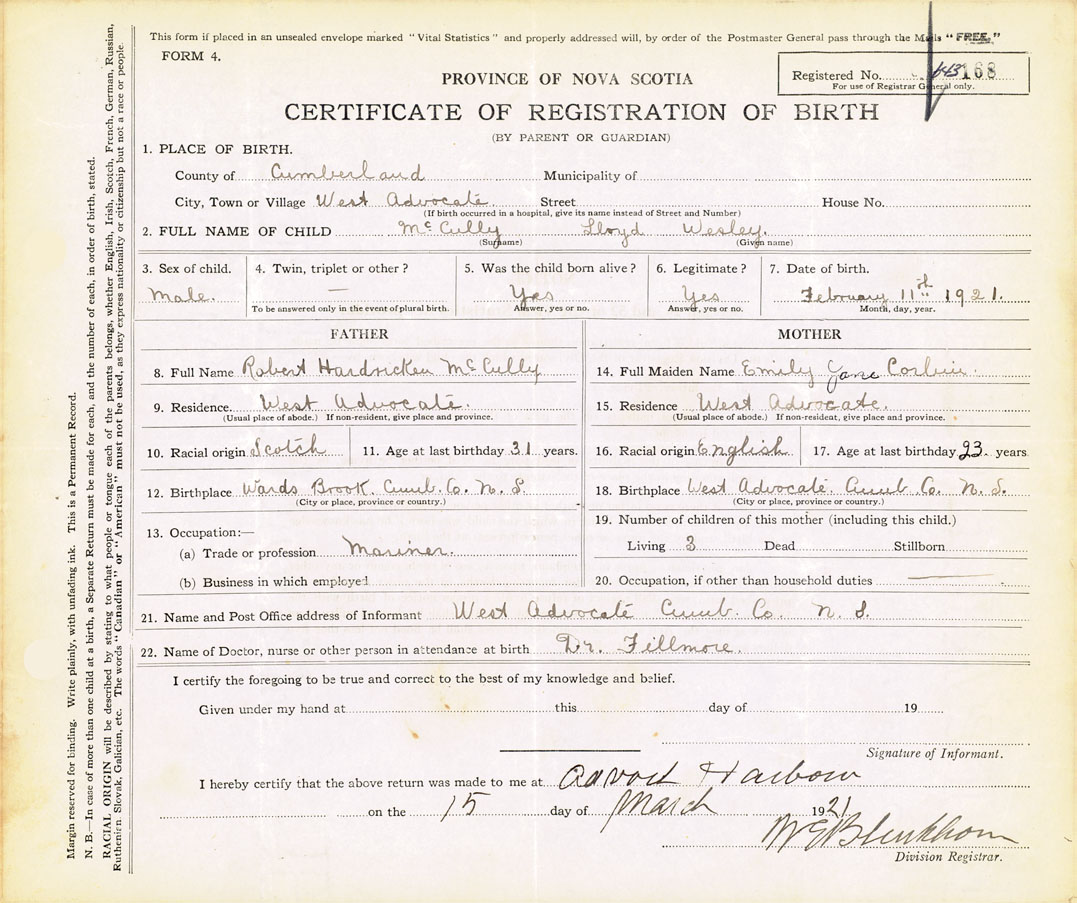 This form if placed in an unsealed envelope marked "Vital Statistics" and properly addressed will, by order of the Postmaster General pass through the Mails "FREE."
FORM 4.
PROVINCE OF NOVA SCOTIA
Registered No. 168
For use of Registrar General only.
CERTIFICATE OF REGISTRATION OF BIRTH
(BY PARENT OR GUARDIAN)
1. PLACE OF BIRTH.
County of Cumberland Municipality of
City, Town or Village West Advocate. Street House No.
(If birth occurred in a hospital, give its name instead of Street and Number)
2. FULL NAME OF CHILD McCully Lloyd Wesley.
(Surname) (Given name)
3. Sex of child. 4. Twin, triplet or other? 5. Was the child born alive? 6. Legitimate? 7. Date of birth.
Male. — Yes Yes February 11th 1921.
To be answered only in the event of plural birth. Answer, yes or no. Answer, yes or no. Month, day, year.
FATHER
8. Full Name Robert Hardricken McCully
9. Residence. West Advocate.
(Usual place of abode.) If non-resident, give place and province.
10. Racial origin Scotch 11. Age at last birthday 31 years.
12. Birthplace Wards Brook. Cumb. Co. N. S.
(City or place, province or country.)
13. Occupation:—
(a) Trade or profession Mariner.
(b) Business in which employed
MOTHER
14. Full Maiden Name Emily Jane Corbin.
15. Residence West Advocate.
(Usual place of abode.) If non-resident, give place and province.
16. Racial origin English 17. Age at last birthday 23. years
18. Birthplace West Advocate. Cumb. Co. N. S.
(City or place, province or country.)
19. Number of children of this mother (including this child.)
Living 3 Dead Stillborn
20. Occupation, if other than household duties —
21. Name and Post Office address of Informant West Advocate Cumb. Co. N. S.
22. Name of Doctor, nurse or other person in attendance at birth Dr. Fillmore.
I certify the foregoing to be true and correct to the best of my knowledge and belief.
Given under my hand at this day of 19
Signature of Informant.
I hereby certify that the above return was made to me at Advocate Harbour
on the 15 day of March 1921
W E Blenkhorn
Division Registrar.
Margin reserved for binding. Write plainly, with unfading ink. This is a Permanent Record.
N. B.—In case of more than one child at a birth, a Separate Return must be made for each, and the number of each, in order of birth, stated.
RACIAL ORIGIN will be described by stating to what people or tongue each of the parents belongs, whether English, Irish, Scotch, French, German, Russian,
Ruthenian, Slovak, Galician, etc. The words "Canadian" or "American" must not be used, as they express nationality or citizenship but not a race or people.